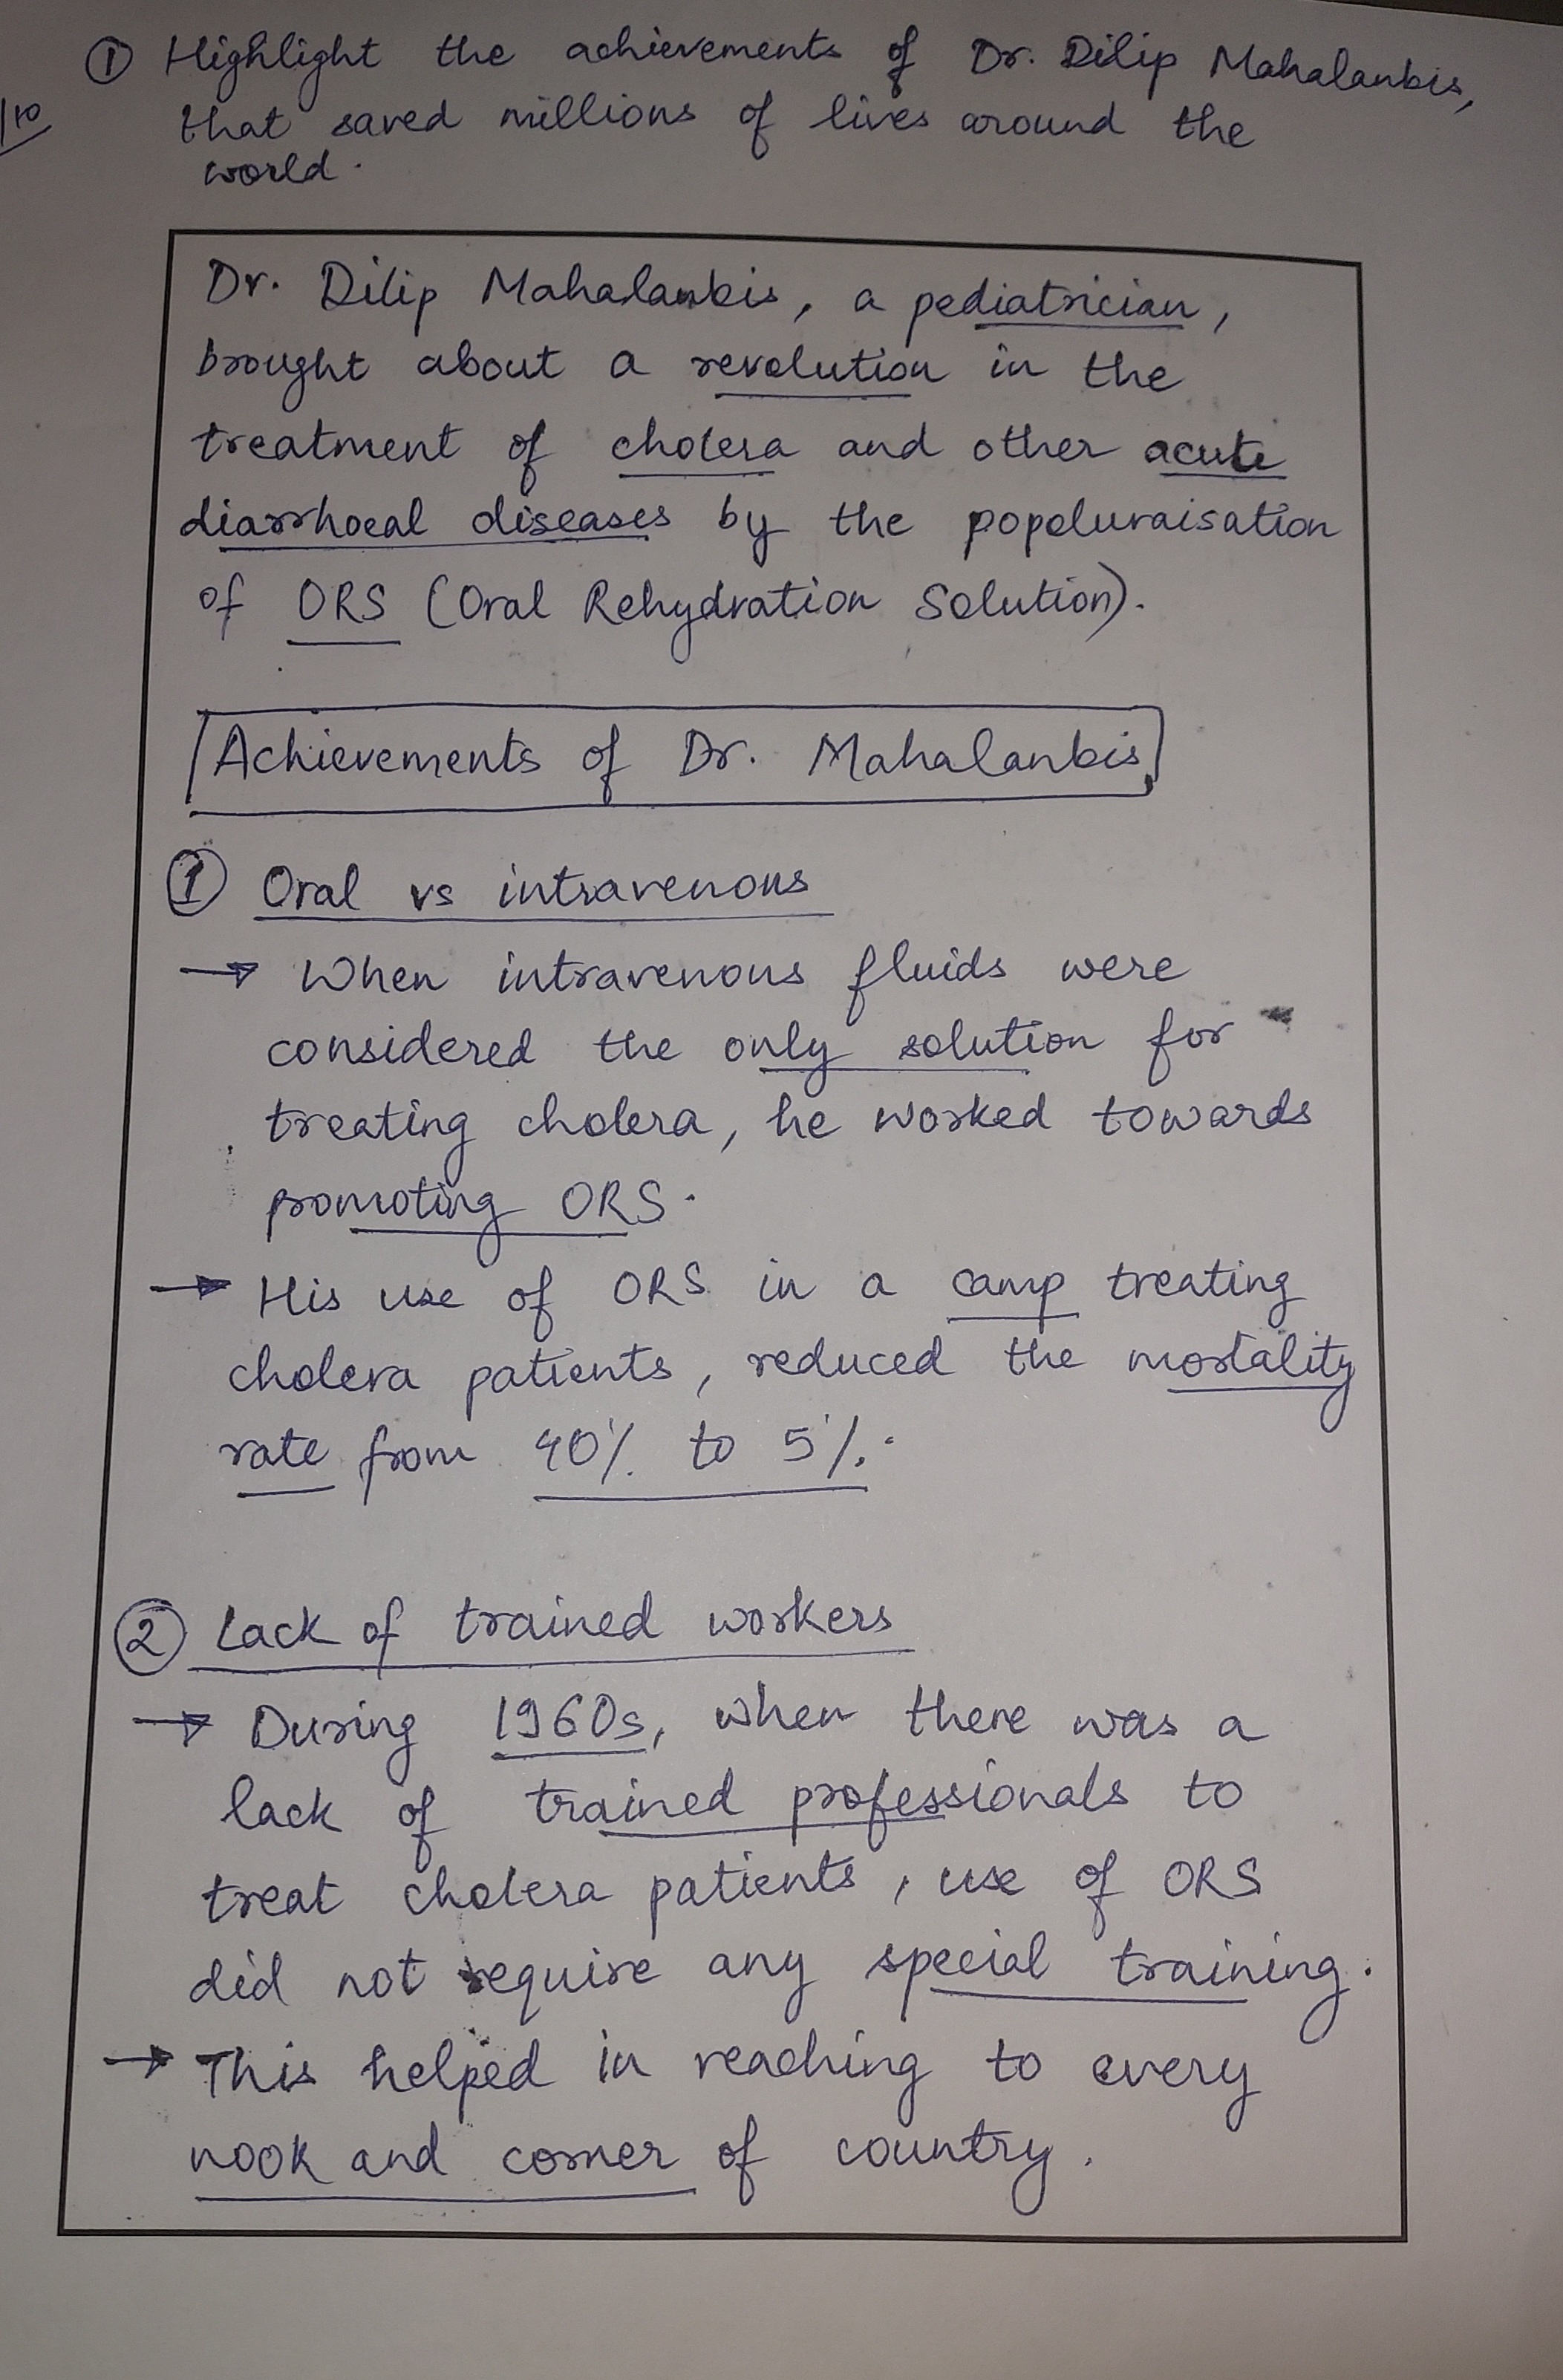 ① Highlight the achievements of Dr. Dilip Mahalanbis,
/10 that saved millions of lives around the
world.
Dr. Dilip Mahalanbis, a pediatrician,
brought about a revolution in the
treatment of cholera and other acute
diarrhoeal diseases by the popeluraisation
of ORS (Oral Rehydration Solution).
Achievements of Dr. Mahalanbis
① Oral vs intravenous
→ When intravenous fluids were
considered the only solution for
treating cholera, he worked towards
promoting ORS.
→ His use of ORS in a camp treating
cholera patients, reduced the mortality
rate from 40% to 5%.
② Lack of trained workers
→ During 1960s, when there was a
lack of trained professionals to
treat cholera patients, use of ORS
did not require any special training.
→ This helped in reaching to every
nook and corner of country.